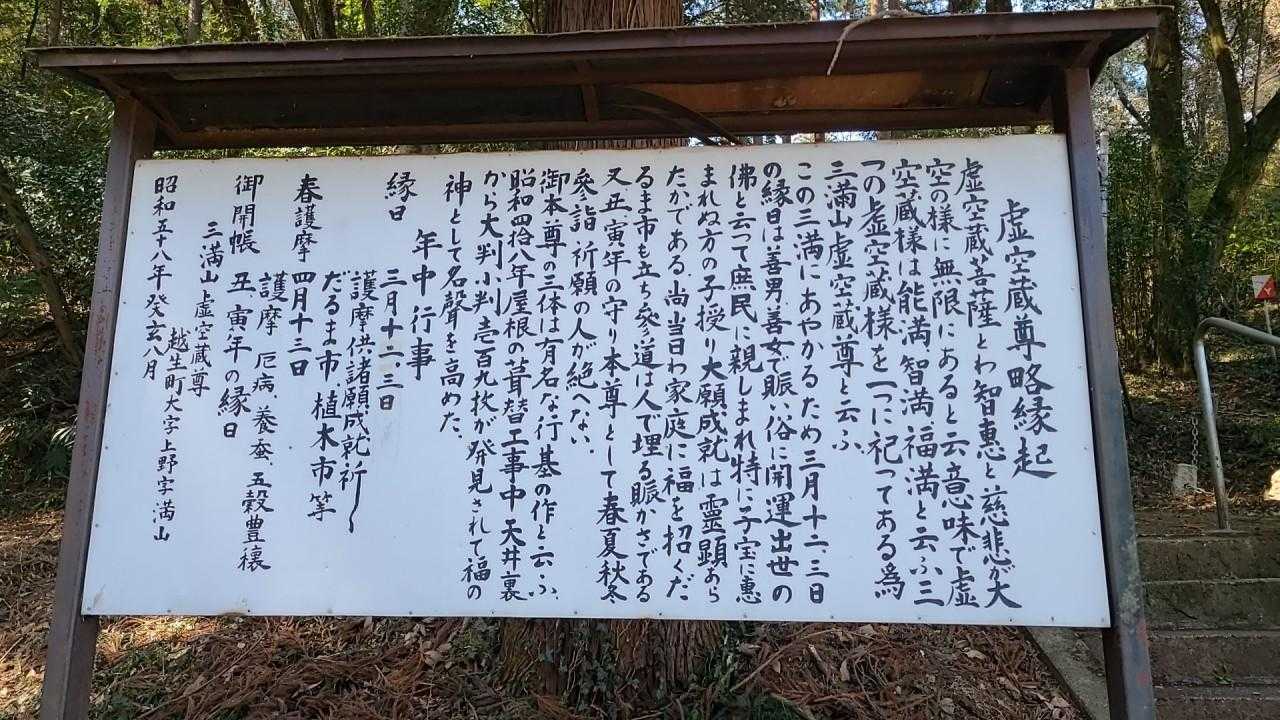 虚空蔵尊略縁起
虚空蔵菩薩とわ智惠と慈悲が大
空の様に無限にあると云意味で虚
空蔵様は能満智満福満と云ふ三
つの虚空蔵様を一つに祀ってある為
三満山虚空蔵尊と云ふ
この三満にあやかるため三月十二、三日
の縁日は善男善女で賑い俗に開運出世の
佛と云って庶民に親しまれ特に子宝に恵
まれぬ方の子授り大願成就は霊顕あら
たかである、尚当日わ家庭に福を招くだ
るま市も立ち参道は人で埋る賑かさである
又丑寅年の守り本尊として春夏秋冬
参詣祈願の人が絶へない、
御本尊の三体は有名な行基の作と云ふ、
昭和四拾八年屋根の葺替工事中天井裏
から大判小判壱百九枚が発見されて福の
神として名聲を高めた、
年中行事
縁日 三月十二、三日
護摩供諸願成就祈〜
だるま市 植木市等
春護摩 四月十三日
護摩 厄病、養蚕、五穀豊穣
御開帳 丑寅年の縁日
三満山 虚空蔵尊
越生町大字上野字満山
昭和五十八年癸亥八月